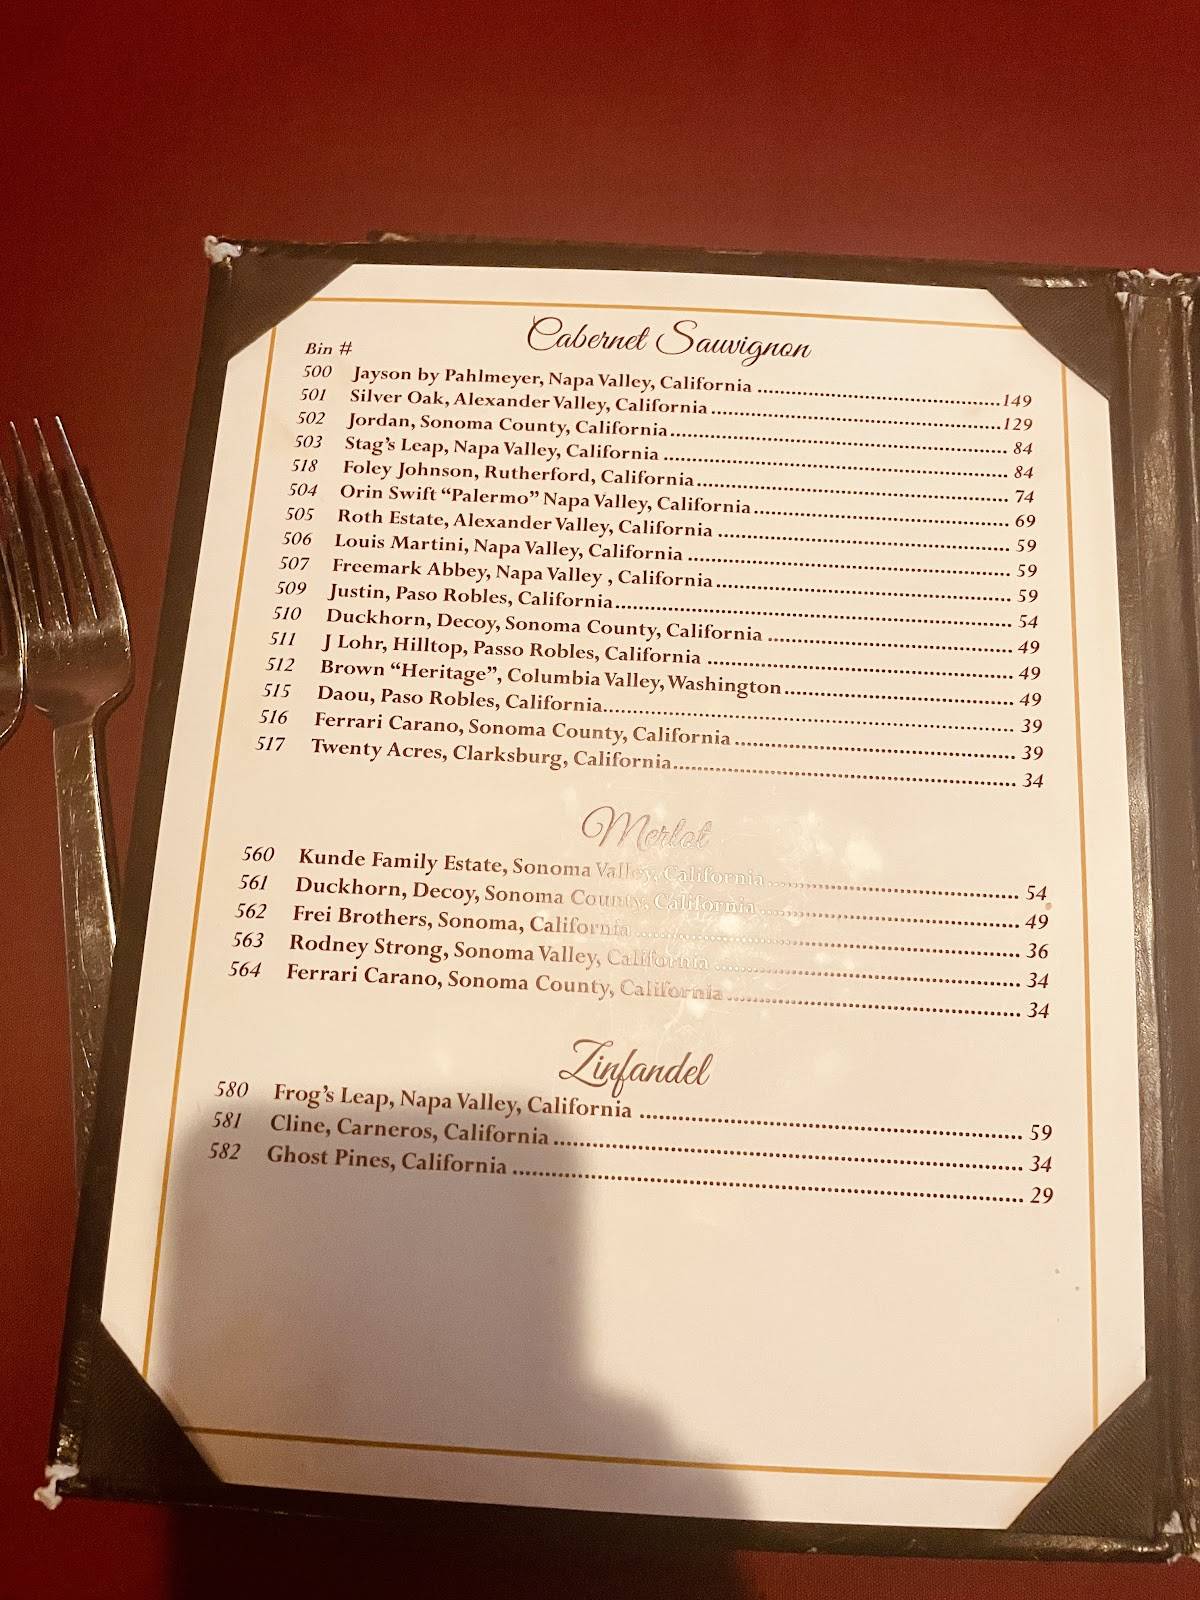 Cabernet Sauvignon
Bin #
500 Jayson by Pahlmeyer, Napa Valley, California ........ 149
501 Silver Oak, Alexander Valley, California ........ 129
502 Jordan, Sonoma County, California ........ 84
503 Stag's Leap, Napa Valley, California ........ 84
518 Foley Johnson, Rutherford, California ........ 74
504 Orin Swift “Palermo” Napa Valley, California ........ 69
505 Roth Estate, Alexander Valley, California ........ 59
506 Louis Martini, Napa Valley, California ........ 59
507 Freemark Abbey, Napa Valley , California ........ 59
509 Justin, Paso Robles, California ........ 54
510 Duckhorn, Decoy, Sonoma County, California ........ 49
511 J Lohr, Hilltop, Passo Robles, California ........ 49
512 Brown “Heritage”, Columbia Valley, Washington ........ 49
515 Daou, Paso Robles, California ........ 39
516 Ferrari Carano, Sonoma County, California ........ 39
517 Twenty Acres, Clarksburg, California ........ 34
Merlot
560 Kunde Family Estate, Sonoma Valley, California ........ 54
561 Duckhorn, Decoy, Sonoma County, California ........ 49
562 Frei Brothers, Sonoma, California ........ 36
563 Rodney Strong, Sonoma Valley, California ........ 34
564 Ferrari Carano, Sonoma County, California ........ 34
Zinfandel
580 Frog's Leap, Napa Valley, California ........ 59
581 Cline, Carneros, California ........ 34
582 Ghost Pines, California ........ 29